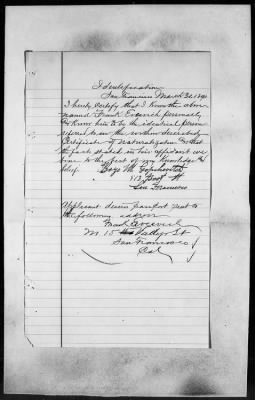 Identification
San Francisco March 30 189
I hereby certify that I know the above
named Frank personally
& know him to be the identical person
referred to in the within described
Certificate of Naturalization & that
the facts stated in his affidavit are
true to the best of my Knowledge &
belief.
San Francisco
Applicant desires passport sent to
the following address
Frank
No 15 Vallejo St
San Francisco
Cal